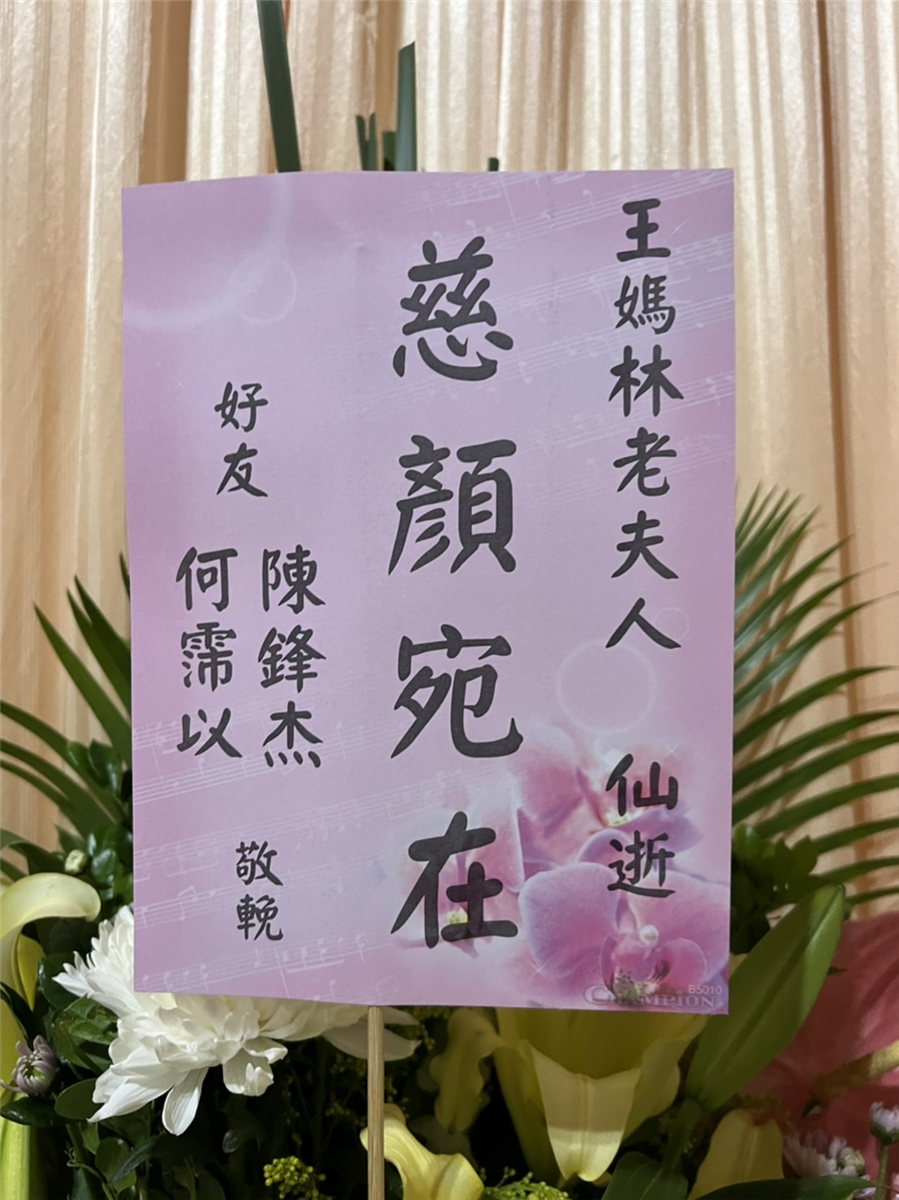 王媽林老夫人 仙逝
慈顏宛在
好友
陳鋒杰
何霈以
敬輓
CHAMPION
B5010